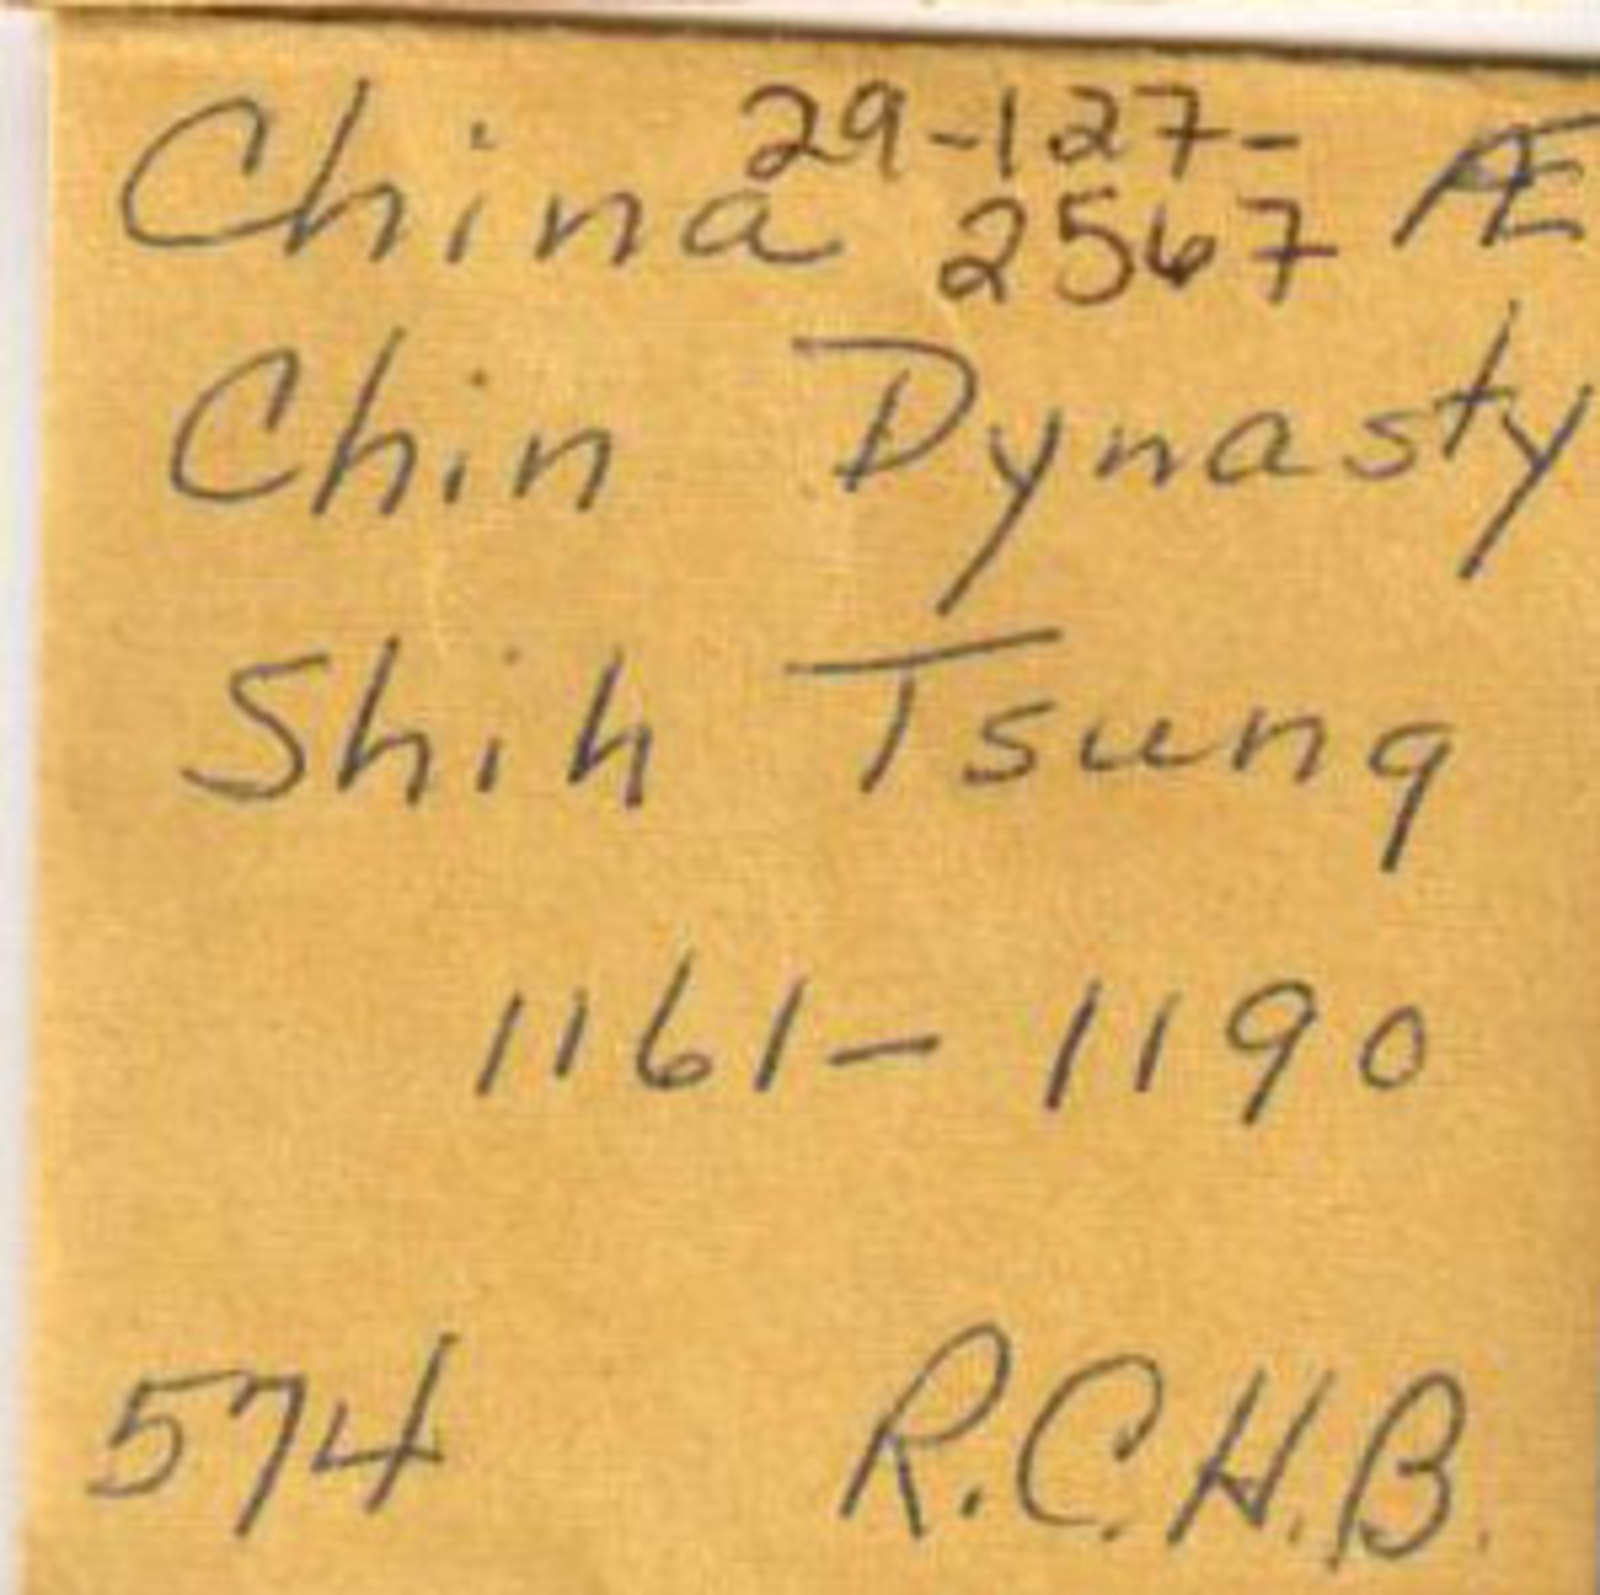 China 29-127- Æ
2567
Chin Dynasty
Shih Tsung
1161- 1190
574 R.C.H.B.